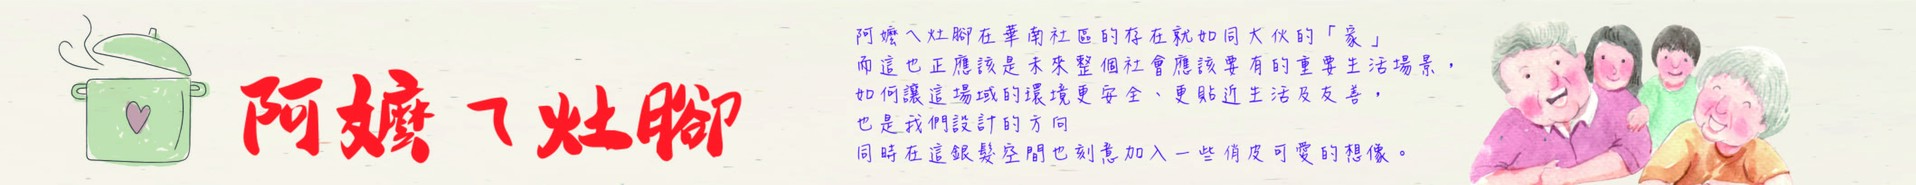 阿嬤ㄟ灶腳
阿嬤ㄟ灶腳在華南社區的存在就如同大伙的「家」
而這也正應該是未來整個社會應該要有的重要生活場景，
如何讓這場域的環境更安全、更貼近生活及友善，
也是我們設計的方向
同時在這銀髮空間也刻意加入一些俏皮可愛的想像。